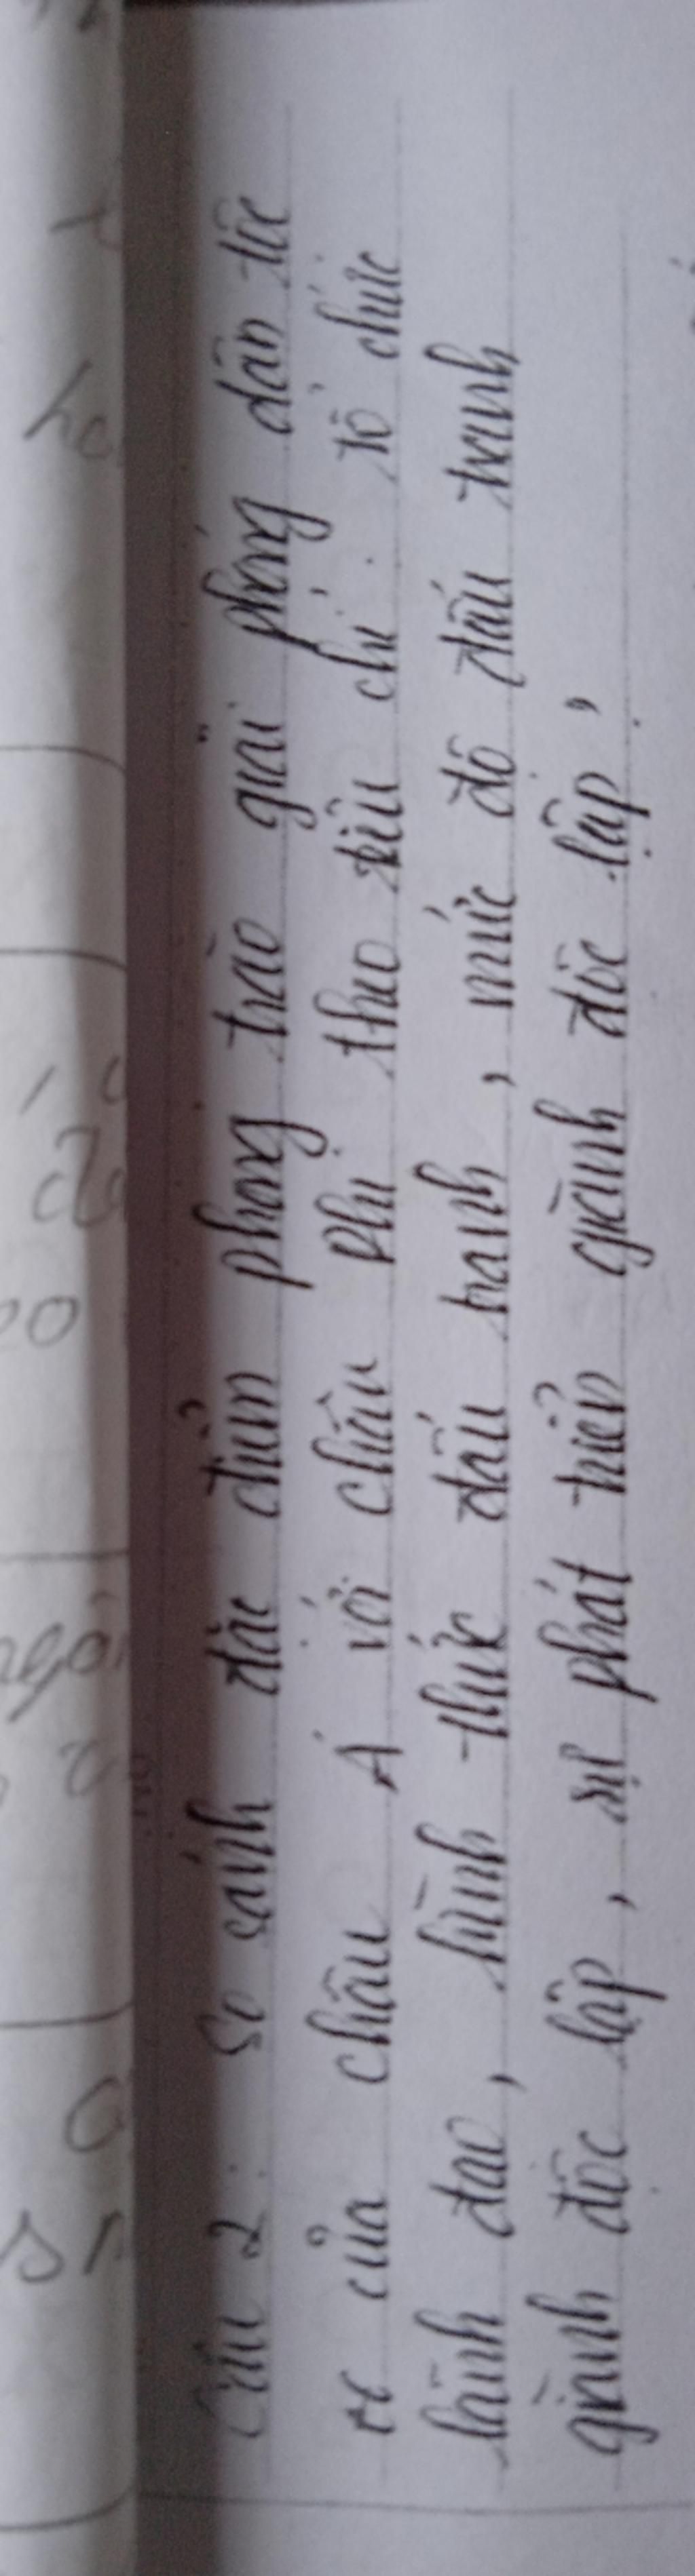 Câu 2: So sánh đặc điểm phong trào giải phóng dân tộc
của châu Á với châu Phi theo tiêu chí: tổ chức
lãnh đạo, hình thức đấu tranh, mức độ đấu tranh
giành độc lập, sự phát triển giành độc lập,